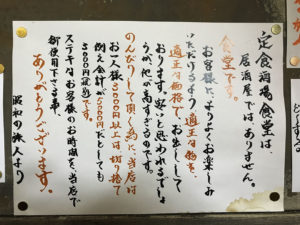 定食酒場食堂は、
居酒屋ではありません。
食堂です。
お客様に、よりよくお楽しみ
いただけるよう適正な物を、
適正な価格で、お出しして
おります。安いと思われるでしょ
うが他が高すぎるのです。
のんびりして頂く為に、当店は
お一人様3000円以上は切り捨て
例え会計が5000円だとしても
3000円です。
ステキなお客様のお時間を、当店で
御使用下さる事、
ありがとうございます。
昭和の旅人より